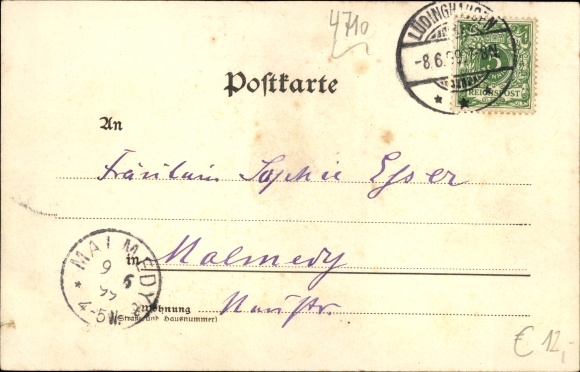 4710
LÜDINGHAUSEN
-8.6.99
5
REICHSPOST
Postkarte
An
Fräulein Sophie Esser
in Malmedy
* MALMEDY
9
6
99
4-5N.
Wohnung
(Straße und Hausnummer)
€ 12,-